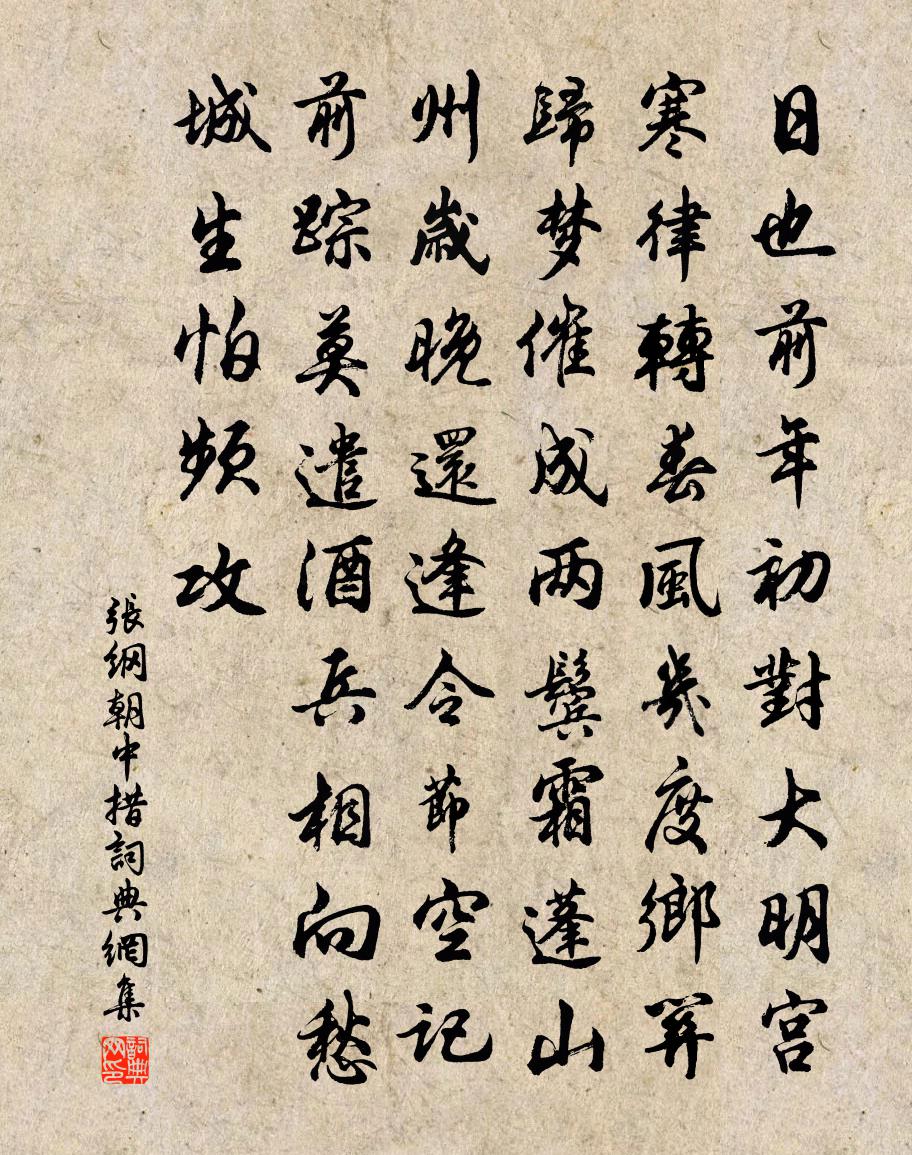 日也前年初對大明宮
寒律轉春風幾度鄉關
歸梦催成两鬓霜蓬山
州歲晚還逢令節空記
前踪莫遣酒兵相向愁
城生怕頻攻
張綱朝中措詞典網集
詞典网印